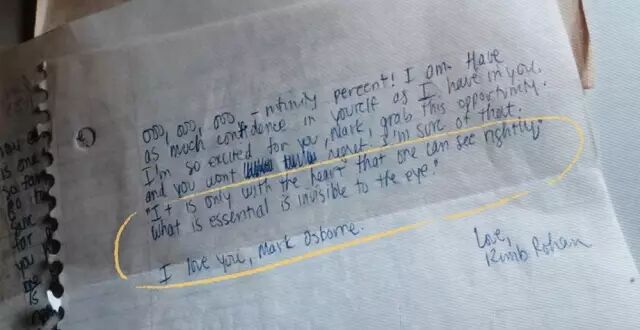 000, 000, 000 - nfinity percent! I am. Have
as much confidence in yourself as I have in you.
I'm so excited for you, Mark, grab this opportunity.
and you wont regret. I'm sure of that.
"It is only with the heart that one can see rightly,
what is essential is invisible to the eye."
I love you, Mark Osborne.
Love,
Kimb Rohan
you
is one
so